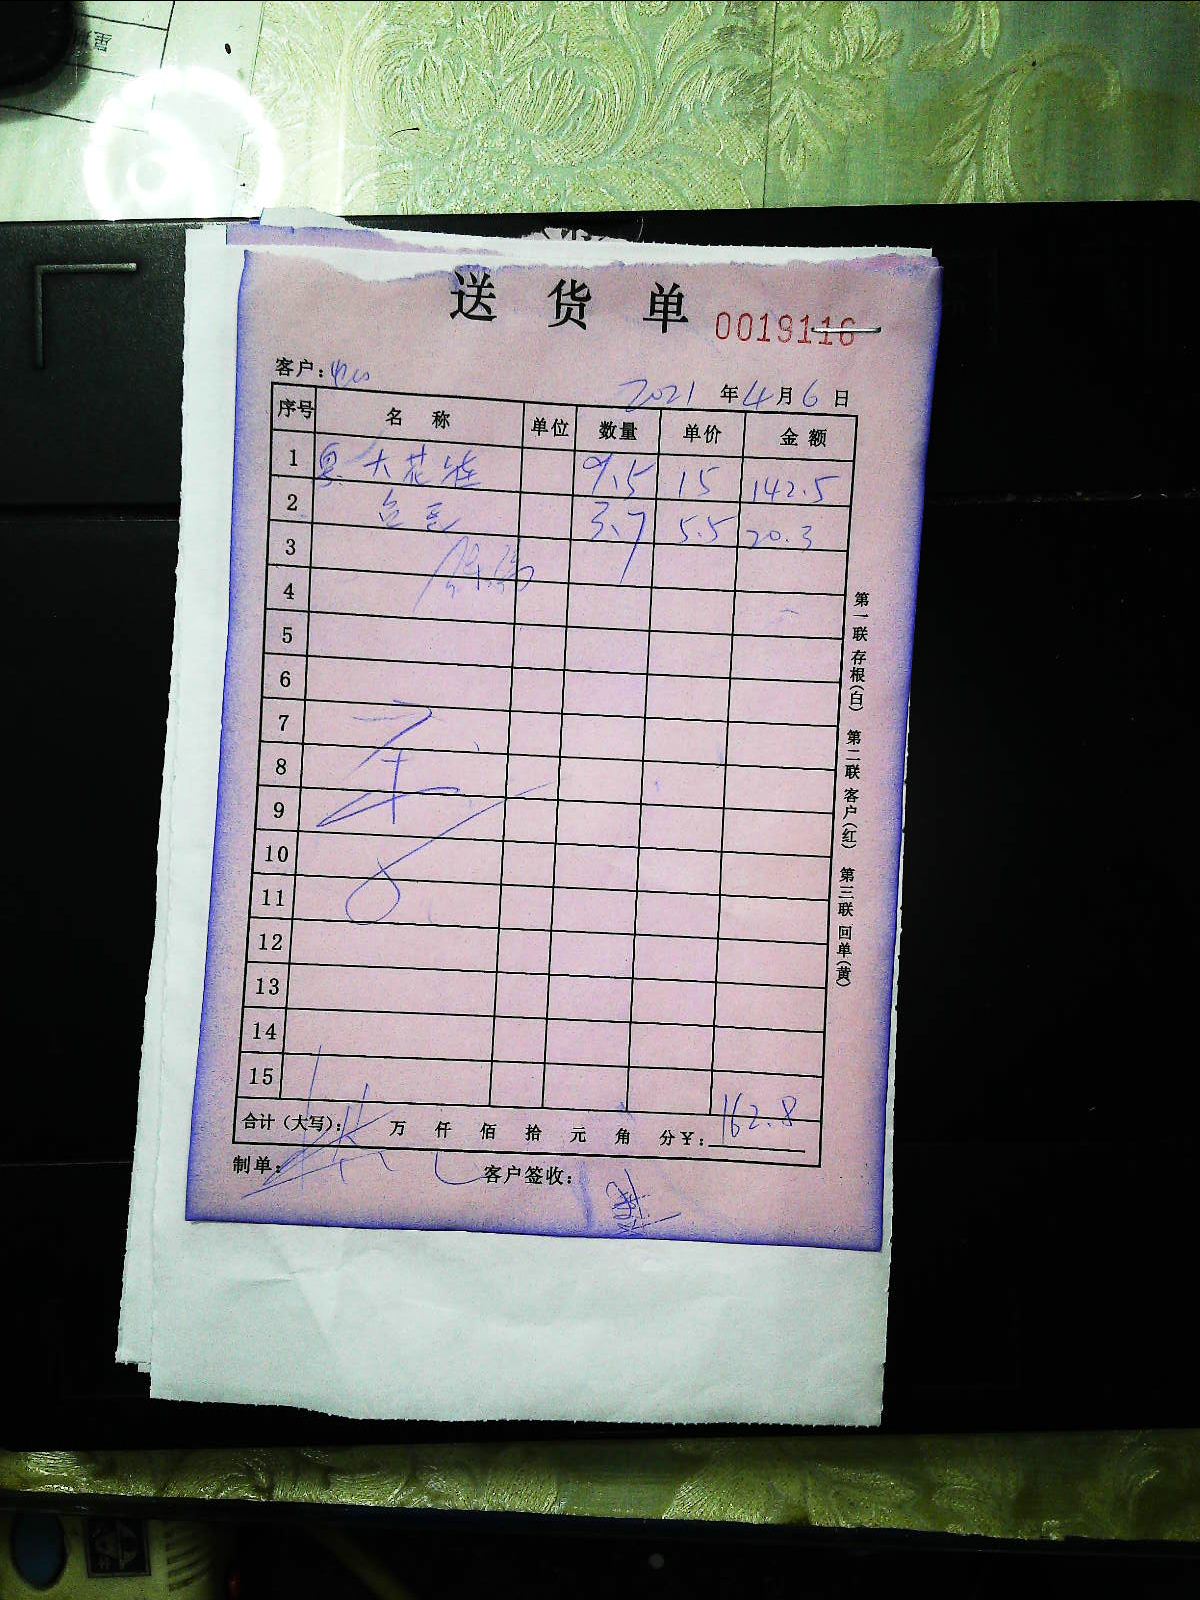 送 货 单
0019116
客户：
2021 年 4 月 6 日
序号 名 称 单位 数量 单价 金额
1 大花 9.5 15 142.5
2 3.7 5.5 20.3
3
4
5
6
7
8
9
10
11
12
13
14
15
合计（大写）： 万 仟 佰 拾 元 角 分￥：162.8
制单： 客户签收：
第一联 存根（白） 第二联 客户（红） 第三联 回单（黄）